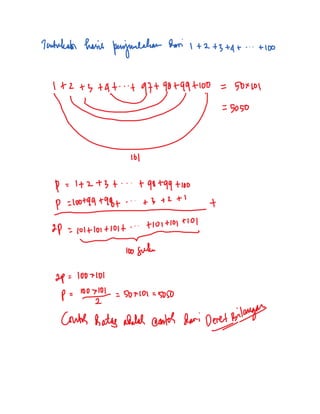 Tentukan hasil penjumlahan dari 1+2+3+4+ ... +100
1+2+3+4+...+97+98+99+100 = 50×101
= 5050
101
P = 1+2+3+ ... +98+99+100
P = 100+99+98+ ... +3+2+1 +
2P = 101+101+101+ ... +101+101+101
100 suku
2P = 100×101
P = 100×101 / 2 = 50×101 = 5050
Contoh diatas adalah contoh dari Deret Bilangan